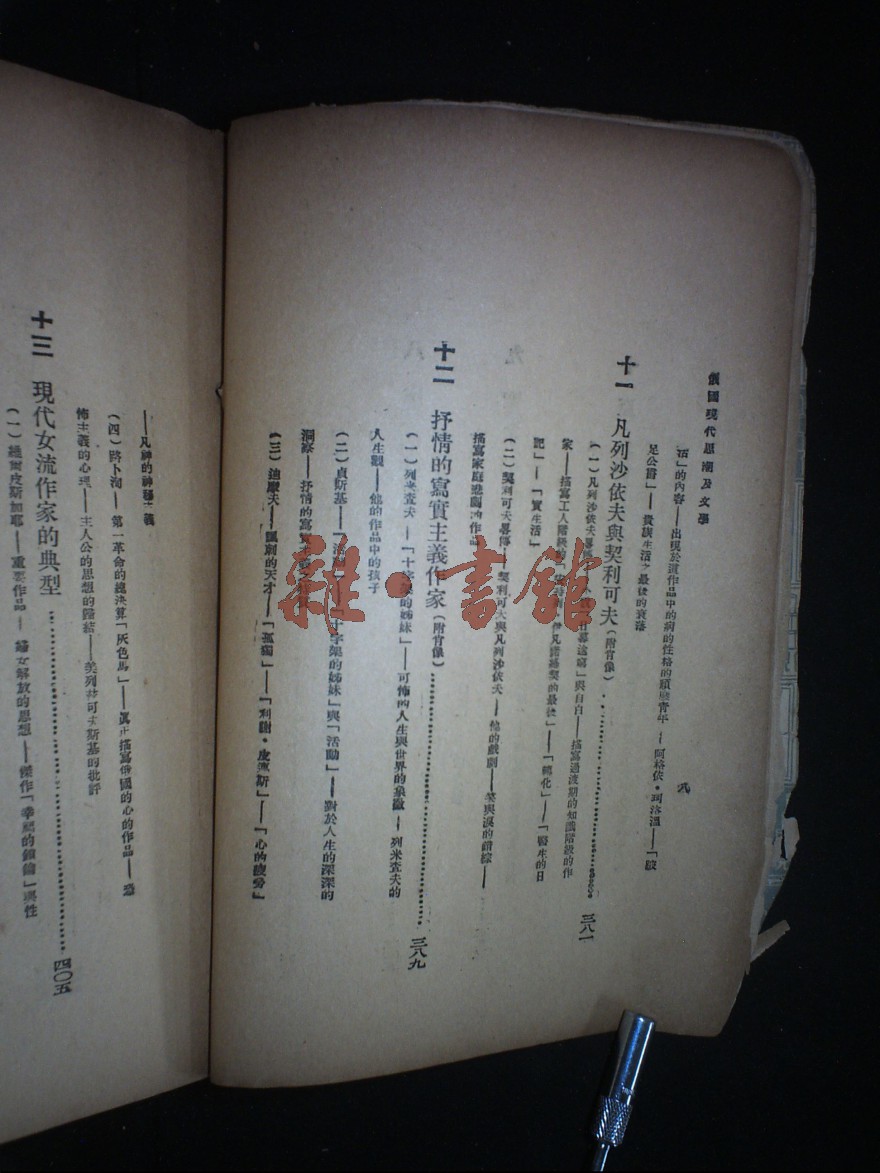 俄國現代思潮及文學
八
活」的內容——出現於這作品中的病的性格的頹廢青年——阿格依·珂洛溫——「跛
足公爵」——貴族生活之最後的衰落
十一 凡列沙依夫與契利可夫(附肖像)…………三八一
(一)凡列沙依夫 與自白——描寫過渡期的知識階級的作
家——描寫工人階級的 的最後」——「轉化」——「醫生的日
記」——「實生活」
(二)契利可夫畧傳——契利可夫與凡列沙依夫——他的戲劇——笑與淚的錯綜——
描寫家庭悲劇的作品
十二 抒情的寫實主義作家(附肖像)…………三八九
(一)列米查夫——「十字架的姊妹」——可怖的人生與世界的象徵——列米查夫的
人生觀——他的作品中的孩子
(二)貞斯基——「活動」——「十字架的姊妹」與「活動」——對於人生的深深的
洞察——抒情的寫實
(三)迪摩夫——諷刺的天才——「孤獨」——「利謝·皮 斯」——「心的疲勞」
——凡神的神秘主義
(四)路卜洵——第一革命的總決算「灰色馬」——眞正描寫俄國的心的作品——恐
怖主義的心理——主人公的思想的歸結——美列林可夫斯基的批評
十三 現代女流作家的典型…………四〇五
(一)維爾皮斯加耶——重要作品——婦女解放的思想——傑作「幸福的鎖鑰」與性
雜·書館